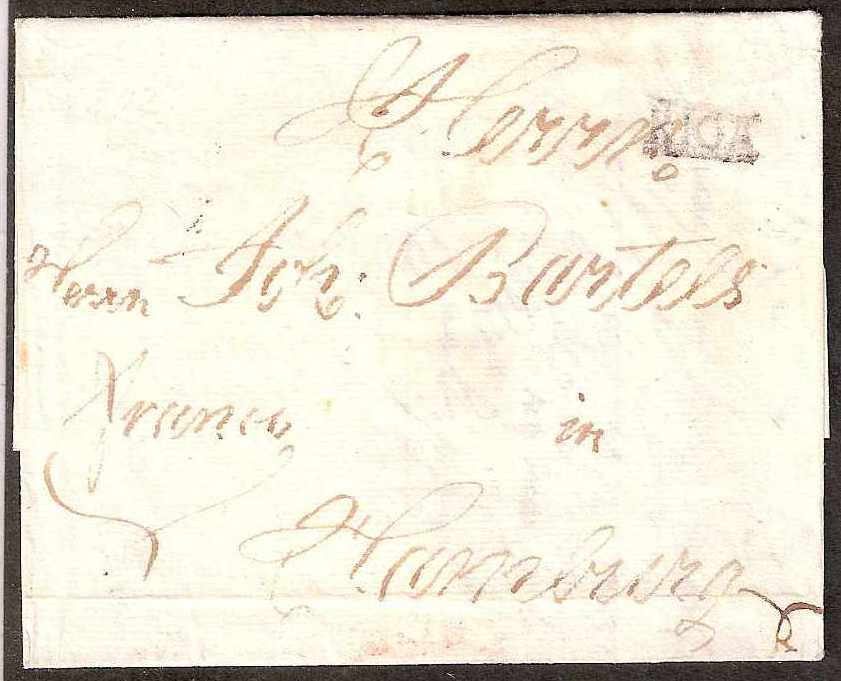 Herrn RIGA
Herrn Joh: Bartels
Franco in
Hamburg